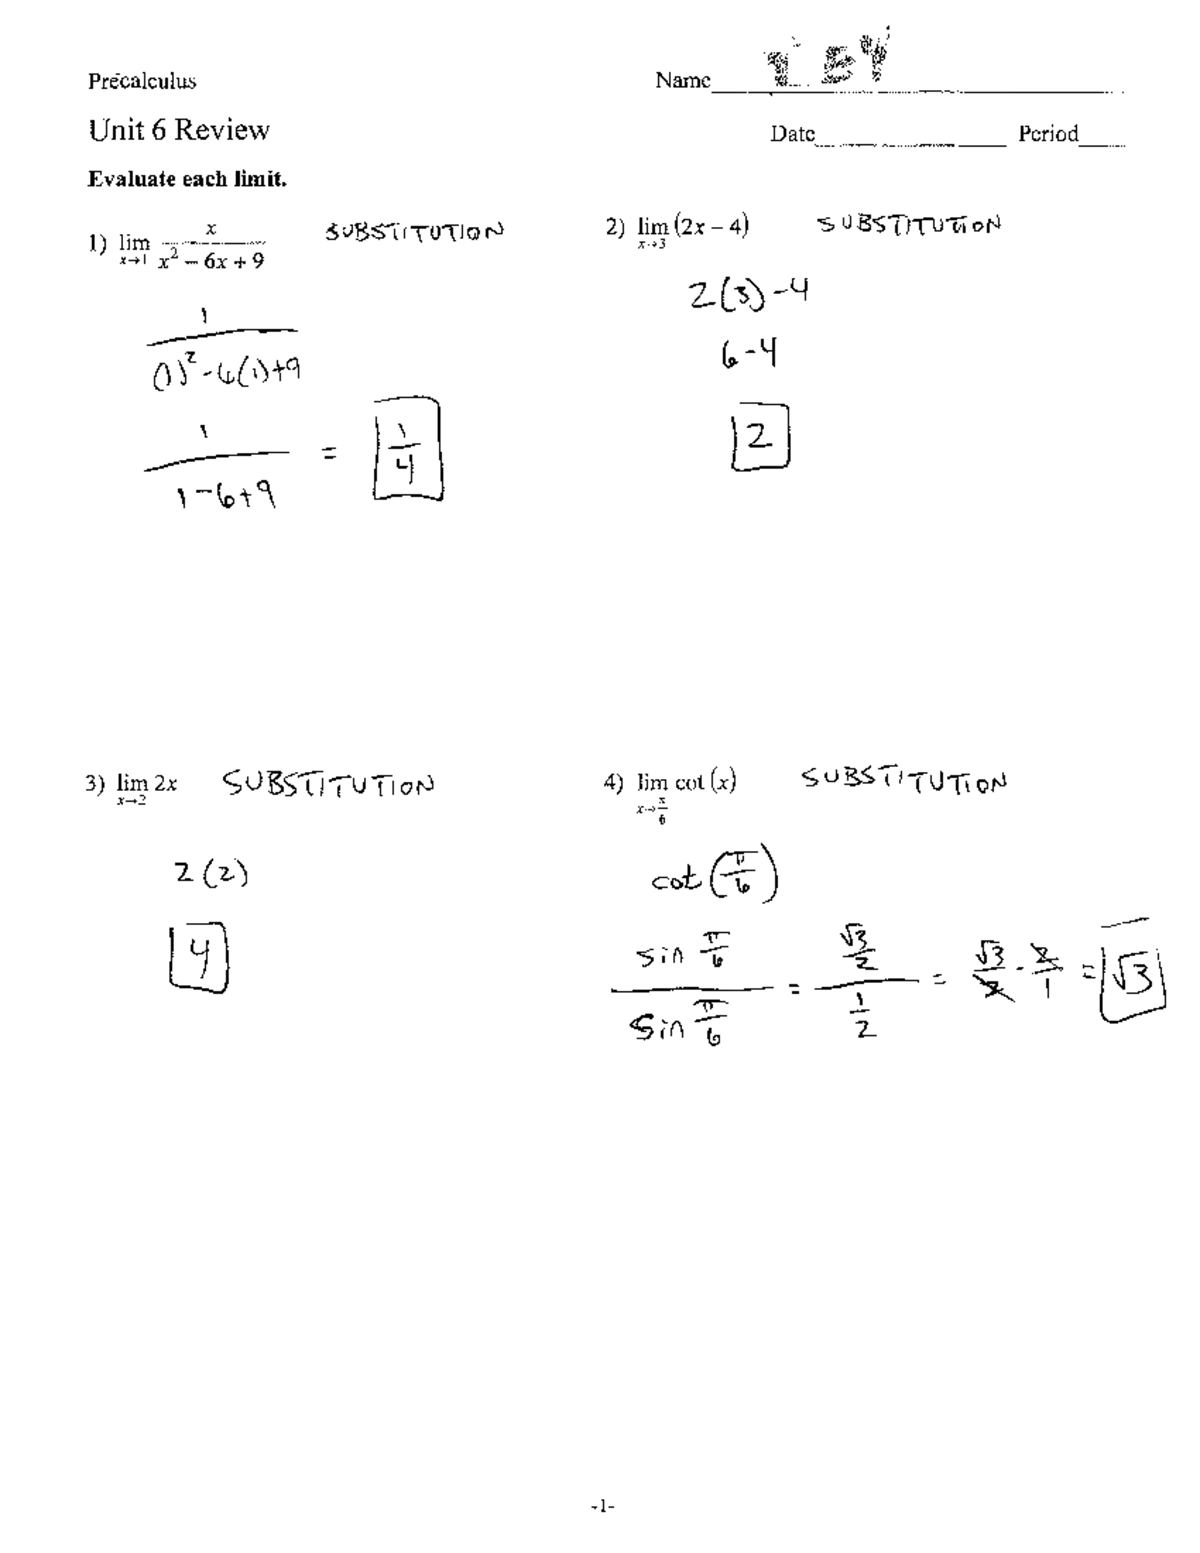 Precalculus
Name KEY
Unit 6 Review
Date Period
Evaluate each limit.
1) lim x→1 x / (x² − 6x + 9) SUBSTITUTION
1 / ((1)² - 6(1) + 9)
1 / (1 - 6 + 9) = 1/4
2) lim x→3 (2x − 4) SUBSTITUTION
2(3) - 4
6 - 4
2
3) lim x→2 2x SUBSTITUTION
2(2)
4
4) lim x→π/6 cot (x) SUBSTITUTION
cot (π/6)
sin π/6 / sin π/6 = √3/2 / 1/2 = √3/2 · 2/1 = √3
-1-